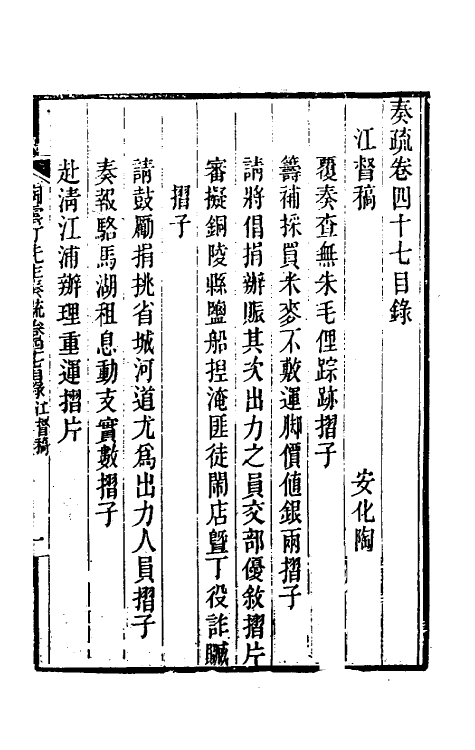 奏疏卷四十七目錄
江督稿 安化陶
覆奏查無朱毛俚踪跡摺子
籌補採買米麥不敷運脚價値銀兩摺子
請將倡捐辦賑其次出力之員交部優敘摺片
審擬銅陵縣鹽船揑淹匪徒鬧店曁丁役詐贓
摺子
請鼓勵捐挑省城河道尤爲出力人員摺子
奏報駱馬湖租息動支實數摺子
赴淸江浦辦理重運摺片
先生奏疏卷四十七目錄江督稿 一